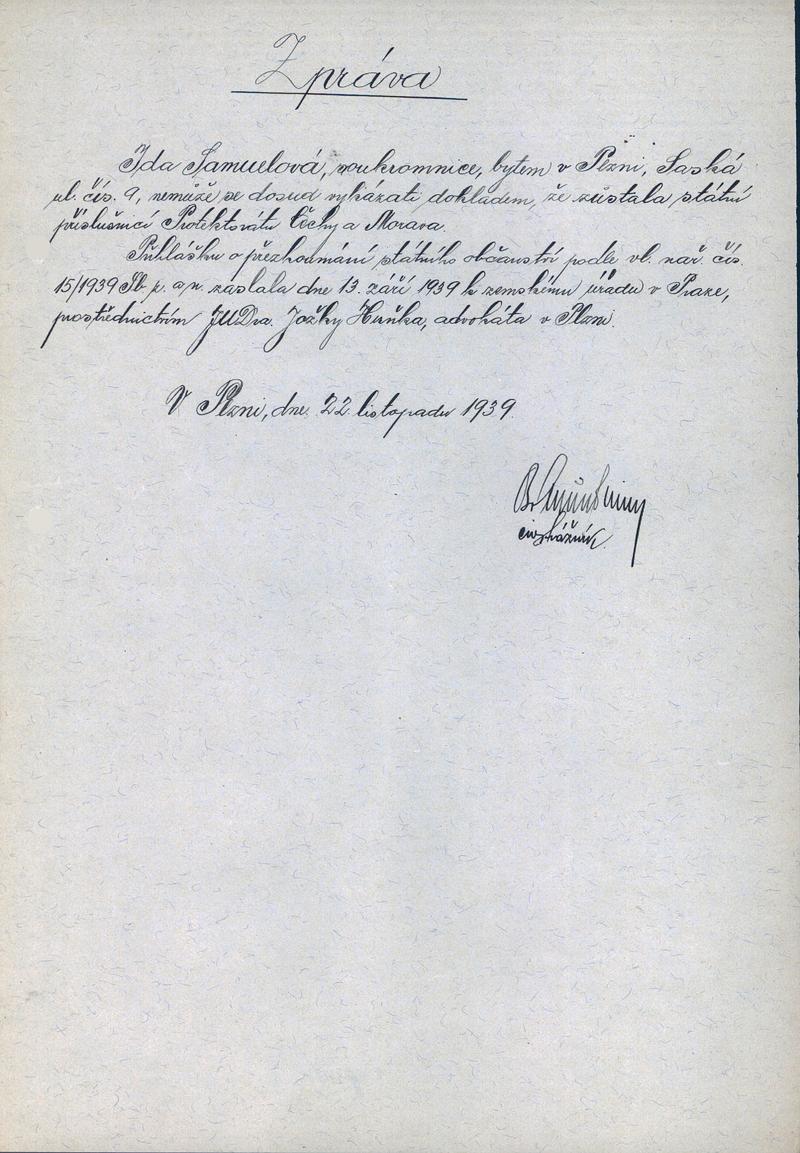 Zpráva
Ida Samuelová, soukromnice, bytem v Plzni, Saská
ul. čís. 9, nemůže se dosud vykázati dokladem, že zůstala státní
příslušnicí Protektorátu Čechy a Morava.
Přihlášku o přezkoumání státního občanství podle vl. nař. čís.
15/1939 Sb. z. a n. zaslala dne 13. září 1939 k zemskému úřadu v Praze,
prostřednictvím JUDra. Jožky, advokáta v Plzni.
V Plzni, dne 22. listopadu 1939